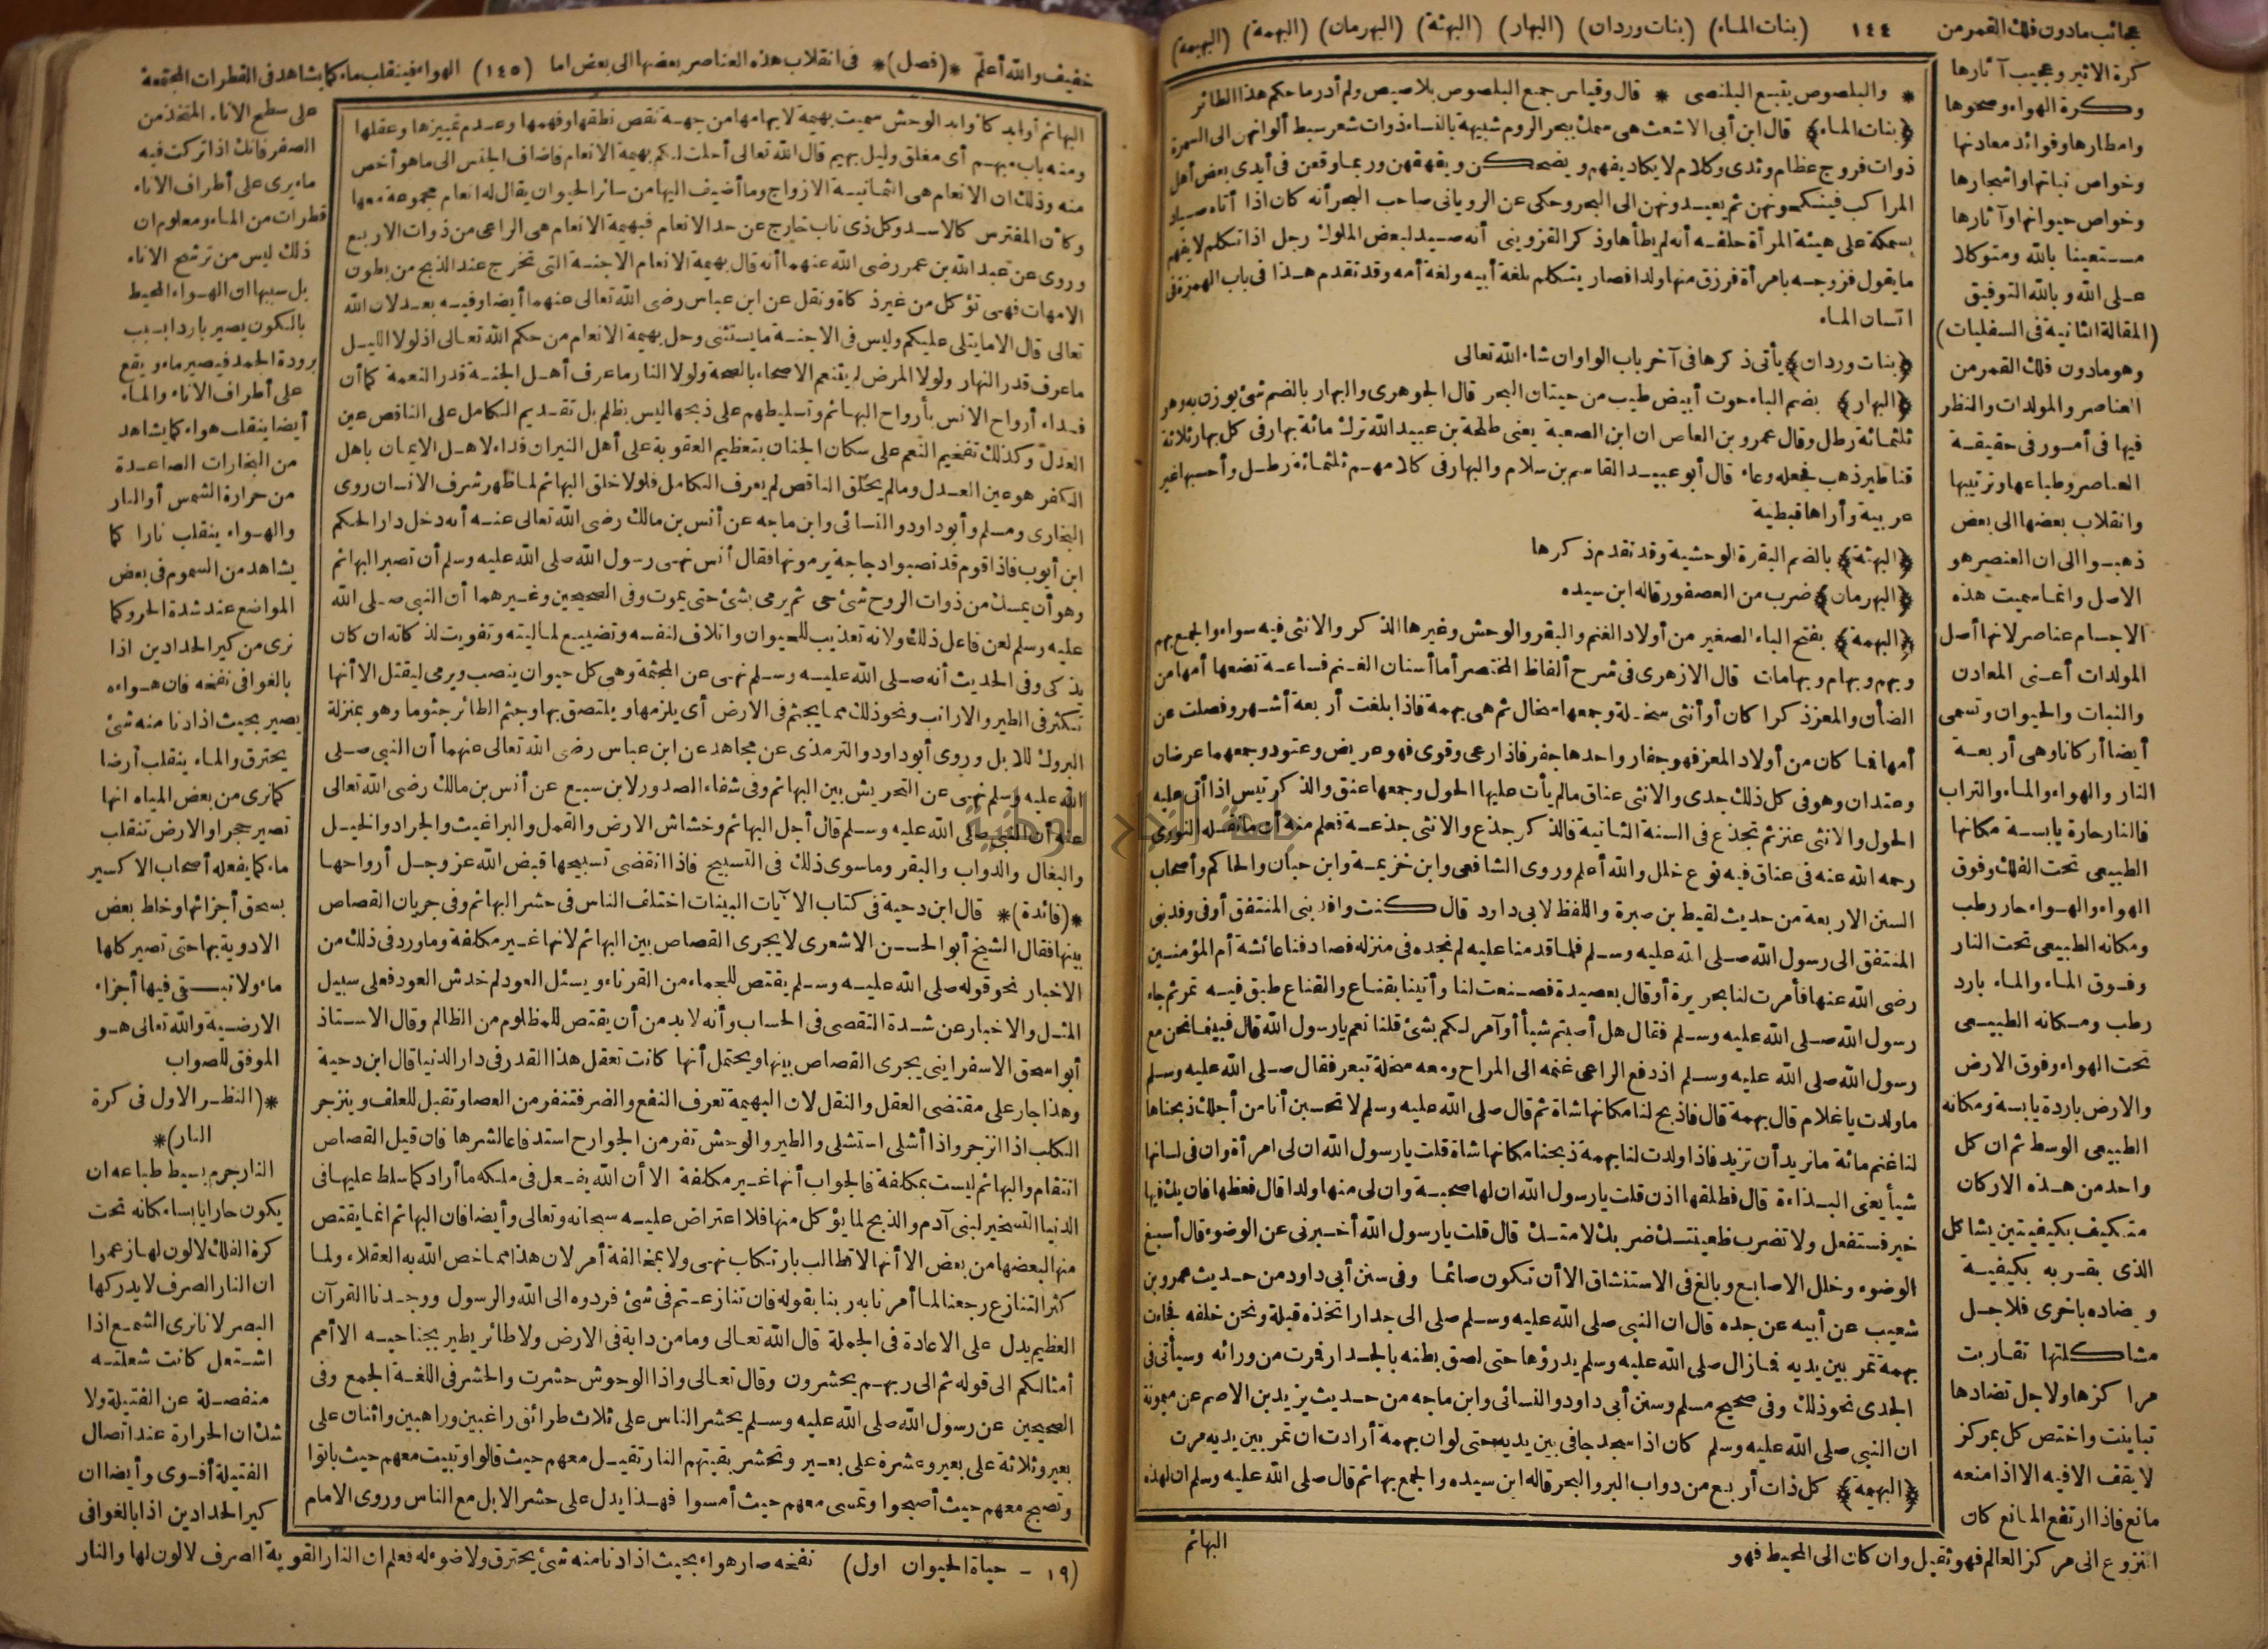 عجائب مادون فلك القمر من ١٤٤ (بنات الماء) (بنات وردان) (البهار) (البهثة) (البهرمان) (البهمة) (البهيمة)
كرة الاثير وعجيب آثارها
وكرة الهواء وصحوها
وامطارها وفوائد معادنها
وخواص نباتها واشجارها
وخواص حيوانها وآثارها
مستعينا بالله ومتوكلا
على الله وبالله التوفيق
(المقالة الثانية فى السفليات)
وهو مادون فلك القمر من
العناصر والمولدات والنظر
فيها فى أمور فى حقيقة
العناصر وطباعها وترتيبها
وانقلاب بعضها الى بعض
ذهبوا الى ان العنصر هو
الاصل وانما سميت هذه
الاجسام عناصر لانها أصل
المولدات أعنى المعادن
والنبات والحيوان وتسمى
أيضا أركانا وهى أربعة
النار والهواء والماء والتراب
فالنار حارة يابسة مكانها
الطبيعى تحت الفلك وفوق
الهواء والهواء حار رطب
ومكانه الطبيعى تحت النار
وفوق الماء والماء بارد
رطب ومكانه الطبيعى
تحت الهواء وفوق الارض
والارض باردة يابسة ومكانه
الطبيعى الوسط ثم ان كل
واحد من هذه الاركان
متكيف بكيفيتين يشاكل
الذى بقربه بكيفية
ويضاده باخرى فلاجل
مشاكلتها تقاربت
مراكزها ولاجل تضادها
تباينت واختص كل بمركز
لا يقف الا فيه الا اذا منعه
مانع فاذا ارتفع المانع كان
النزوع الى مركز العالم فهو ثقيل وان كان الى المحيط فهو
* والبلصوص يتبع البلنصى * قال وقياس جمع البلصوص بلاصيص ولم أدر ما حكم هذا الطائر
﴿بنات الماء﴾ قال ابن أبى الاشعث هى سمك ببحر الروم شبيهة بالنساء ذوات شعر سبط ألوانهن الى السمرة
ذوات فروج عظام وثدى وكلام لا يكاد يفهم ويضحكن ويقهقهن وربما وقعن فى أيدى بعض أهل
المراكب فينكحونهن ثم يعيدونهن الى البحر وحكى عن الرويانى صاحب البحر أنه كان اذا أتاه صياد
بسمكة على هيئة المرأة حلفه أنه لم يطأها وذكر القزوينى أنه صيد لبعض الملوك رجل اذا تكلم لا يفهم
ما يقول فزوجه بامرأة فرزق منها ولدا فصار يتكلم بلغة أبيه ولغة أمه وقد تقدم هذا فى باب الهمزة فى
انسان الماء
﴿بنات وردان﴾ يأتى ذكرها فى آخر باب الواو ان شاء الله تعالى
﴿البهار﴾ بضم الباء حوت أبيض طيب من حيتان البحر قال الجوهرى والبهار بالضم شئ يوزن به وهو
ثلثمائة رطل وقال عمرو بن العاص ان ابن الصعبة يعنى طلحة بن عبيد الله ترك مائة بهار فى كل بهار ثلاثة
قناطير ذهب فجعله وعاء قال أبو عبيد القاسم بن سلام والبهار فى كلامهم ثلثمائة رطل وأحسبها غير
عربية وأراها قبطية
﴿البهثة﴾ بالضم البقرة الوحشية وقد تقدم ذكرها
﴿البهرمان﴾ ضرب من العصفور قاله ابن سيده
﴿البهمة﴾ بفتح الباء الصغير من أولاد الغنم والبقر والوحش وغيرها الذكر والانثى فيه سواء والجمع بهم
وبهم وبهام وبهامات قال الازهرى فى شرح ألفاظ المختصر أما أسنان الغنم فساعة تضعها أمها من
الضأن والمعز ذكرا كان أو أنثى سخلة وجمعها سخال ثم هى بهمة فاذا بلغت أربعة أشهر وفصلت عن
أمها فما كان من أولاد المعز فهو جفار واحدها جفر فاذا رعى وقوى فهو عريض وعتود وجمعهما عرضان
وعتدان وهو فى كل ذلك جدى والانثى عناق مالم يأت عليها الحول وجمعها عنق والذكر تيس اذا أتى عليه
الحول والانثى عنز ثم تجذع فى السنة الثانية فالذكر جذع والانثى جذعة فعلم منه أن ما نقله النووى
رحمه الله عنه فى عناق فيه نوع خلل والله أعلم وروى الشافعى وابن خزيمة وابن حبان والحاكم وأصحاب
السنن الاربعة من حديث لقيط بن صبرة واللفظ لابى داود قال كنت وافد بنى المنتفق أو فى وفد بنى
المنتفق الى رسول الله صلى الله عليه وسلم فلما قدمنا عليه لم نجده فى منزله فصادفنا عائشة أم المؤمنين
رضى الله عنها فأمرت لنا بحريرة أو قال بعصيدة فصنعت لنا وأتينا بقناع والقناع طبق فيه تمر ثم جاء
رسول الله صلى الله عليه وسلم فقال هل أصبتم شيأ أو آمر لكم بشئ قلنا نعم يا رسول الله قال فبينما نحن مع
رسول الله صلى الله عليه وسلم اذ دفع الراعى غنمه الى المراح ومعه سخلة تيعر فقال صلى الله عليه وسلم
ما ولدت يا غلام قال بهمة قال فاذبح لنا مكانها شاة ثم قال صلى الله عليه وسلم لا تحسبن أنا من أجلك ذبحناها
لنا غنم مائة ما نريد أن تزيد فاذا ولدت لنا بهمة ذبحنا مكانها شاة قلت يا رسول الله ان لى امرأة وان فى لسانها
شيأ يعنى البذاءة قال فطلقها اذن قلت يا رسول الله ان لها صحبة وان لى منها ولدا قال فعظها فان يك فيها
خير فستفعل ولا تضرب ظعينتك ضربك لامتك قال قلت يا رسول الله أخبرنى عن الوضوء قال أسبغ
الوضوء وخلل الاصابع وبالغ فى الاستنشاق الا أن تكون صائما وفى سنن أبى داود من حديث عمرو بن
شعيب عن أبيه عن جده قال ان النبى صلى الله عليه وسلم صلى الى جدار اتخذه قبلة ونحن خلفه فجاءت
بهمة تمر بين يديه فما زال صلى الله عليه وسلم يدرؤها حتى لصق بطنه بالجدار فمرت من ورائه وسيأتى فى
الجدى نحو ذلك وفى صحيح مسلم وسنن أبى داود والنسائى وابن ماجه من حديث يزيد بن الاصم عن ميمونة
ان النبى صلى الله عليه وسلم كان اذا سجد جافى بين يديه حتى لو ان بهمة أرادت ان تمر بين يديه مرت
﴿البهيمة﴾ كل ذات أربع من دواب البر والبحر قاله ابن سيده والجمع بهائم قال صلى الله عليه وسلم ان لهذه
البهائم
خفيف والله أعلم *(فصل)* فى انقلاب هذه العناصر بعضها الى بعض اما (١٤٥) الهواء فينقلب ماء كما يشاهد فى القطرات المجتمعة
البهائم أوابد كأوابد الوحش سميت بهيمة لابهامها من جهة نقص نطقها وفهمها وعدم تمييزها وعقلها
ومنه باب مبهم أى مغلق وليل بهيم قال الله تعالى أحلت لكم بهيمة الانعام فاضاف الجنس الى ما هو أخص
منه وذلك ان الانعام هى الثمانية الازواج وما أضيف اليها من سائر الحيوان يقال له انعام مجموعة معها
وكأن المفترس كالاسد وكل ذى ناب خارج عن حد الانعام فبهيمة الانعام هى الراعى من ذوات الاربع
وروى عن عبد الله بن عمر رضى الله عنهما أنه قال بهيمة الانعام الاجنة التى تخرج عند الذبح من بطون
الامهات فهى تؤكل من غير ذكاة ونقل عن ابن عباس رضى الله تعالى عنهما أيضا وفيه بعد لان الله
تعالى قال الا ما يتلى عليكم وليس فى الاجنة ما يستثنى وحل بهيمة الانعام من حكم الله تعالى اذ لولا الليل
ما عرف قدر النهار ولولا المرض لم يتنعم الاصحاء بالصحة ولولا النار ما عرف أهل الجنة قدر النعمة كما أن
فداء أرواح الانس بأرواح البهائم وتسليطهم على ذبحها ليس بظلم بل تقديم الكامل على الناقص عين
العدل وكذلك تفخيم النعم على سكان الجنان بتعظيم العقوبة على أهل النيران فداء لاهل الايمان باهل
الكفر هو عين العدل وما لم يخلق الناقص لم يعرف الكامل فلولا خلق البهائم لما ظهر شرف الانسان روى
البخارى ومسلم وأبو داود والنسائى وابن ماجه عن أنس بن مالك رضى الله تعالى عنه أنه دخل دار الحكم
ابن أيوب فاذا قوم قد نصبوا دجاجة يرمونها فقال أنس نهى رسول الله صلى الله عليه وسلم أن تصبر البهائم
وهو أن يمسك من ذوات الروح شئ حى ثم يرمى بشئ حتى يموت وفى الصحيحين وغيرهما أن النبى صلى الله
عليه وسلم لعن فاعل ذلك ولانه تعذيب للحيوان واتلاف لنفسه وتضييع لماليته وتفويت لذكاته ان كان
يذكى وفى الحديث أنه صلى الله عليه وسلم نهى عن المجثمة وهى كل حيوان ينصب ويرمى ليقتل الا أنها
تكثر فى الطير والارانب ونحو ذلك مما يجثم فى الارض أى يلزمها ويلتصق بها وجثم الطائر جثوما وهو بمنزلة
البروك للابل وروى أبو داود والترمذى عن مجاهد عن ابن عباس رضى الله تعالى عنهما أن النبى صلى
الله عليه وسلم نهى عن التحريش بين البهائم وفى شفاء الصدور لابن سبع عن أنس بن مالك رضى الله تعالى
عنه أن النبى صلى الله عليه وسلم قال أجل البهائم وخشاش الارض والقمل والبراغيث والجراد والخيل
والبغال والدواب والبقر وما سوى ذلك فى التسبيح فاذا انقضى تسبيحها قبض الله عز وجل أرواحها
*(فائدة)* قال ابن دحية فى كتاب الآيات البينات اختلف الناس فى حشر البهائم وفى جريان القصاص
بينها فقال الشيخ أبو الحسن الاشعرى لا يجرى القصاص بين البهائم لانها غير مكلفة وما ورد فى ذلك من
الاخبار نحو قوله صلى الله عليه وسلم يقتص للجماء من القرناء ويسئل العود لم خدش العود فعلى سبيل
المثل والاخبار عن شدة التقصى فى الحساب وأنه لا بد من أن يقتص للمظلوم من الظالم وقال الاستاذ
أبو اسحق الاسفراينى يجرى القصاص بينها ويحتمل أنها كانت تعقل هذا القدر فى دار الدنيا قال ابن دحية
وهذا جار على مقتضى العقل والنقل لان البهيمة تعرف النفع والضر فتنفر من العصا وتقبل للعلف وينزجر
الكلب اذا انزجر واذا أشلى استشلى والطير والوحش تفر من الجوارح استدفاعا لشرها فان قيل القصاص
انتقام والبهائم ليست بمكلفة فالجواب أنها غير مكلفة الا أن الله يفعل فى ملكه ما أراد كما سلط عليها فى
الدنيا التسخير لبنى آدم والذبح لما يؤكل منها فلا اعتراض عليه سبحانه وتعالى وأيضا فان البهائم انما يقتص
منها لبعضها من بعض الا أنها لا تطالب بارتكاب نهى ولا بمخالفة أمر لان هذا مما خص الله به العقلاء ولما
كثر التنازع رجعنا لما أمرنا به ربنا بقوله فان تنازعتم فى شئ فردوه الى الله والرسول ووجدنا القرآن
العظيم يدل على الاعادة فى الجملة قال الله تعالى وما من دابة فى الارض ولا طائر يطير بجناحيه الا أمم
أمثالكم الى قوله ثم الى ربهم يحشرون وقال تعالى واذا الوحوش حشرت والحشر فى اللغة الجمع وفى
الصحيحين عن رسول الله صلى الله عليه وسلم يحشر الناس على ثلاث طرائق راغبين وراهبين واثنان على
بعير وثلاثة على بعير وعشرة على بعير وتحشر بقيتهم النار تقيل معهم حيث قالوا وتبيت معهم حيث باتوا
وتصبح معهم حيث أصبحوا وتمسى معهم حيث أمسوا فهذا يدل على حشر الابل مع الناس وروى الامام
على سطح الاناء المتخذ من
الصفر فانك اذا تركت فيه
ماء يرى على أطراف الاناء
قطرات من الماء ومعلوم ان
ذلك ليس من ترشح الاناء
بل سببها ان الهواء المحيط
بالكون يصير باردا بسبب
برودة الجمد فيصير ماء ويقع
على أطراف الاناء والماء
أيضا ينقلب هواء كما يشاهد
من البخارات الصاعدة
من حرارة الشمس أو النار
والهواء ينقلب نارا كما
يشاهد من السموم فى بعض
المواضع عند شدة الحر وكما
نرى من كير الحدادين اذا
بالغوا فى نفخه فان هواءه
يصير بحيث اذا دنا منه شئ
يحترق والماء ينقلب أرضا
كما نرى من بعض المياه انها
تصير حجرا والارض تنقلب
ماء كما يفعله أصحاب الاكسير
بسحق أجزائها وخلط بعض
الادوية بها حتى تصير كلها
ماء ولا تبقى فيها أجزاء
الارضية والله تعالى هو
الموفق للصواب
*(النظر الاول فى كرة
النار)*
النار جرم بسيط طباعه ان
يكون حارا يابسا مكانه تحت
كرة الفلك لا لون لها زعموا
ان النار الصرف لا يدركها
البصر لانا نرى الشمع اذا
اشتعل كانت شعلته
منفصلة عن الفتيلة ولا
شك ان الحرارة عند اتصال
الفتيلة أقوى وأيضا ان
كير الحدادين اذا بالغوا فى
(١٩ - حياة الحيوان اول) نفخه صار هواء بحيث اذا دنا منه شئ يحترق ولا ضوء له فعلم ان النار القوية الصرف لا لون لها والنار
جامعة النجاح الوطنية